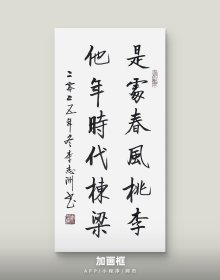 是處春風桃李
他年時代棟梁
二零二五年冬李志洲书
加画框
APP/小程序/网页